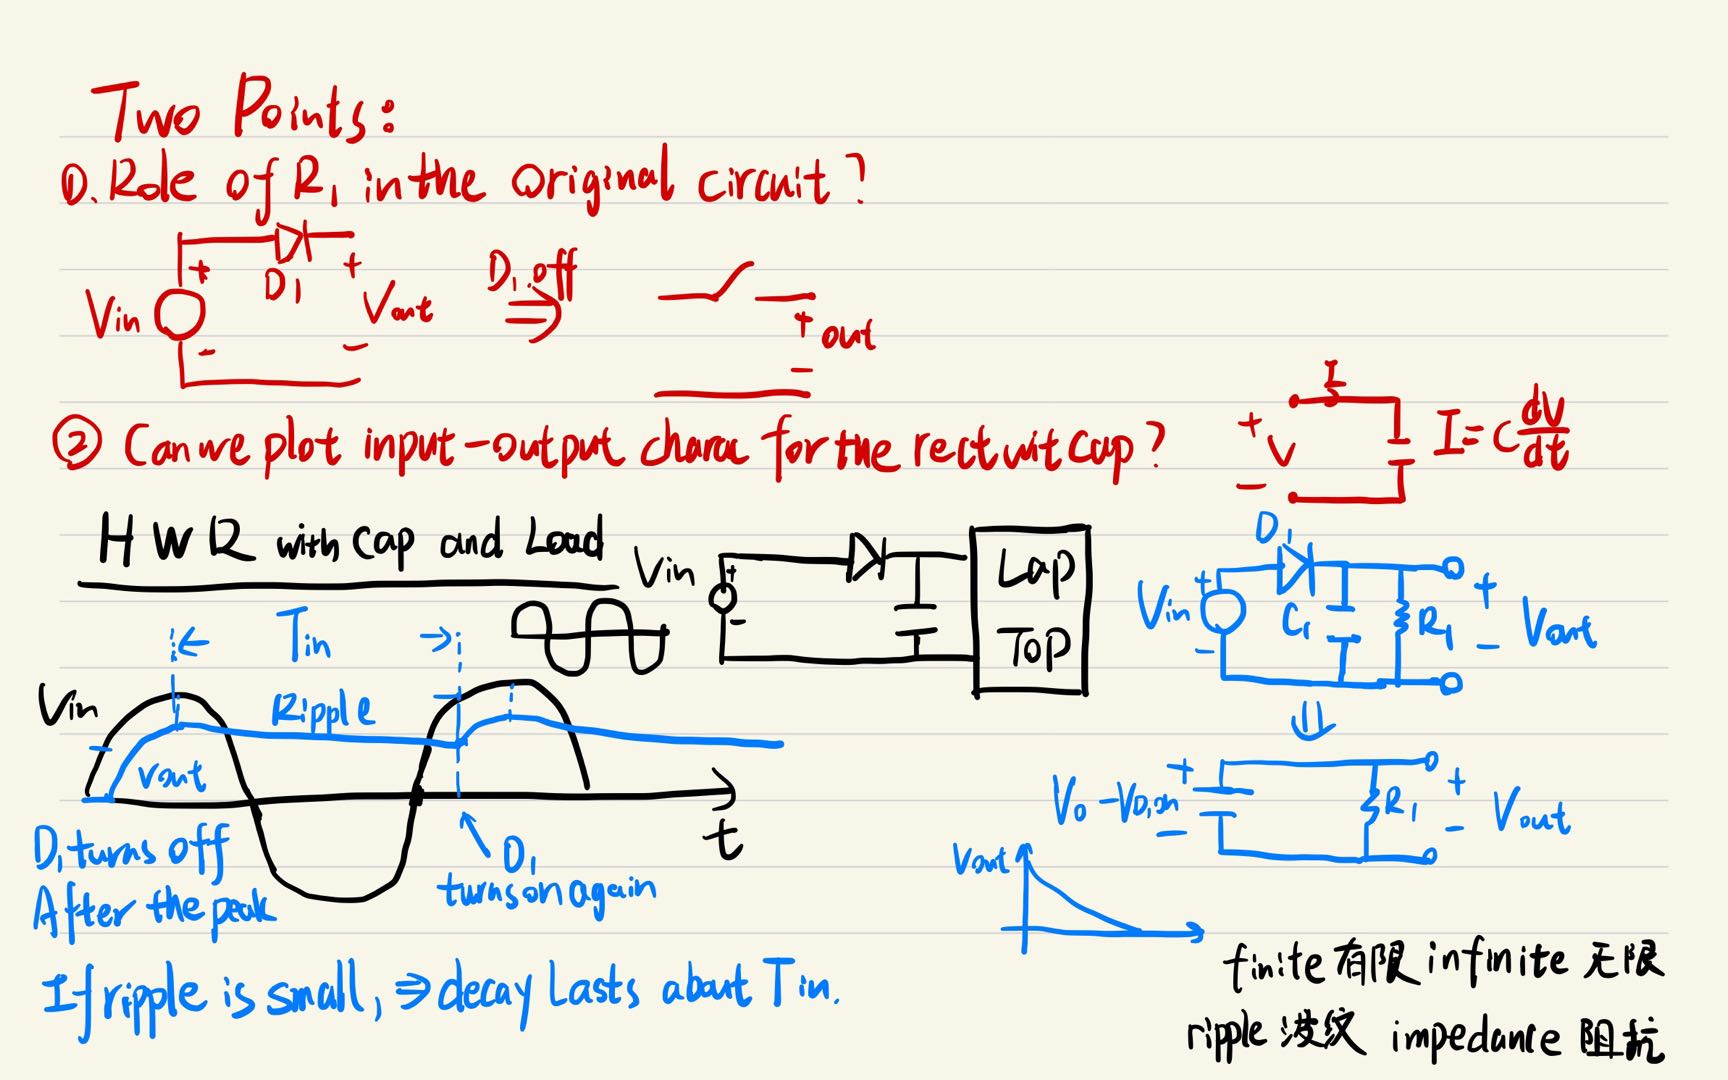 Two Points:
①. Role of R₁ in the original circuit?
+
D₁
+
Vin
Vout
-
-
D₁ off
⇒
+
out
-
② Can we plot input-output charac for the rect wit cap?
I
+
V
-
I = C dV/dt
HWR with Cap and Load
Vin
+
-
Lap
Top
D₁
Vin
+
-
C₁
R₁
+
-
Vout
Tin
Vin
Ripple
Vout
t
D₁ turns off
After the peak
D₁
turns on again
V₀ - VD,on
+
-
R₁
+
-
Vout
Vout
If ripple is small, ⇒ decay Lasts about Tin.
finite 有限 infinite 无限
ripple 波纹 impedance 阻抗